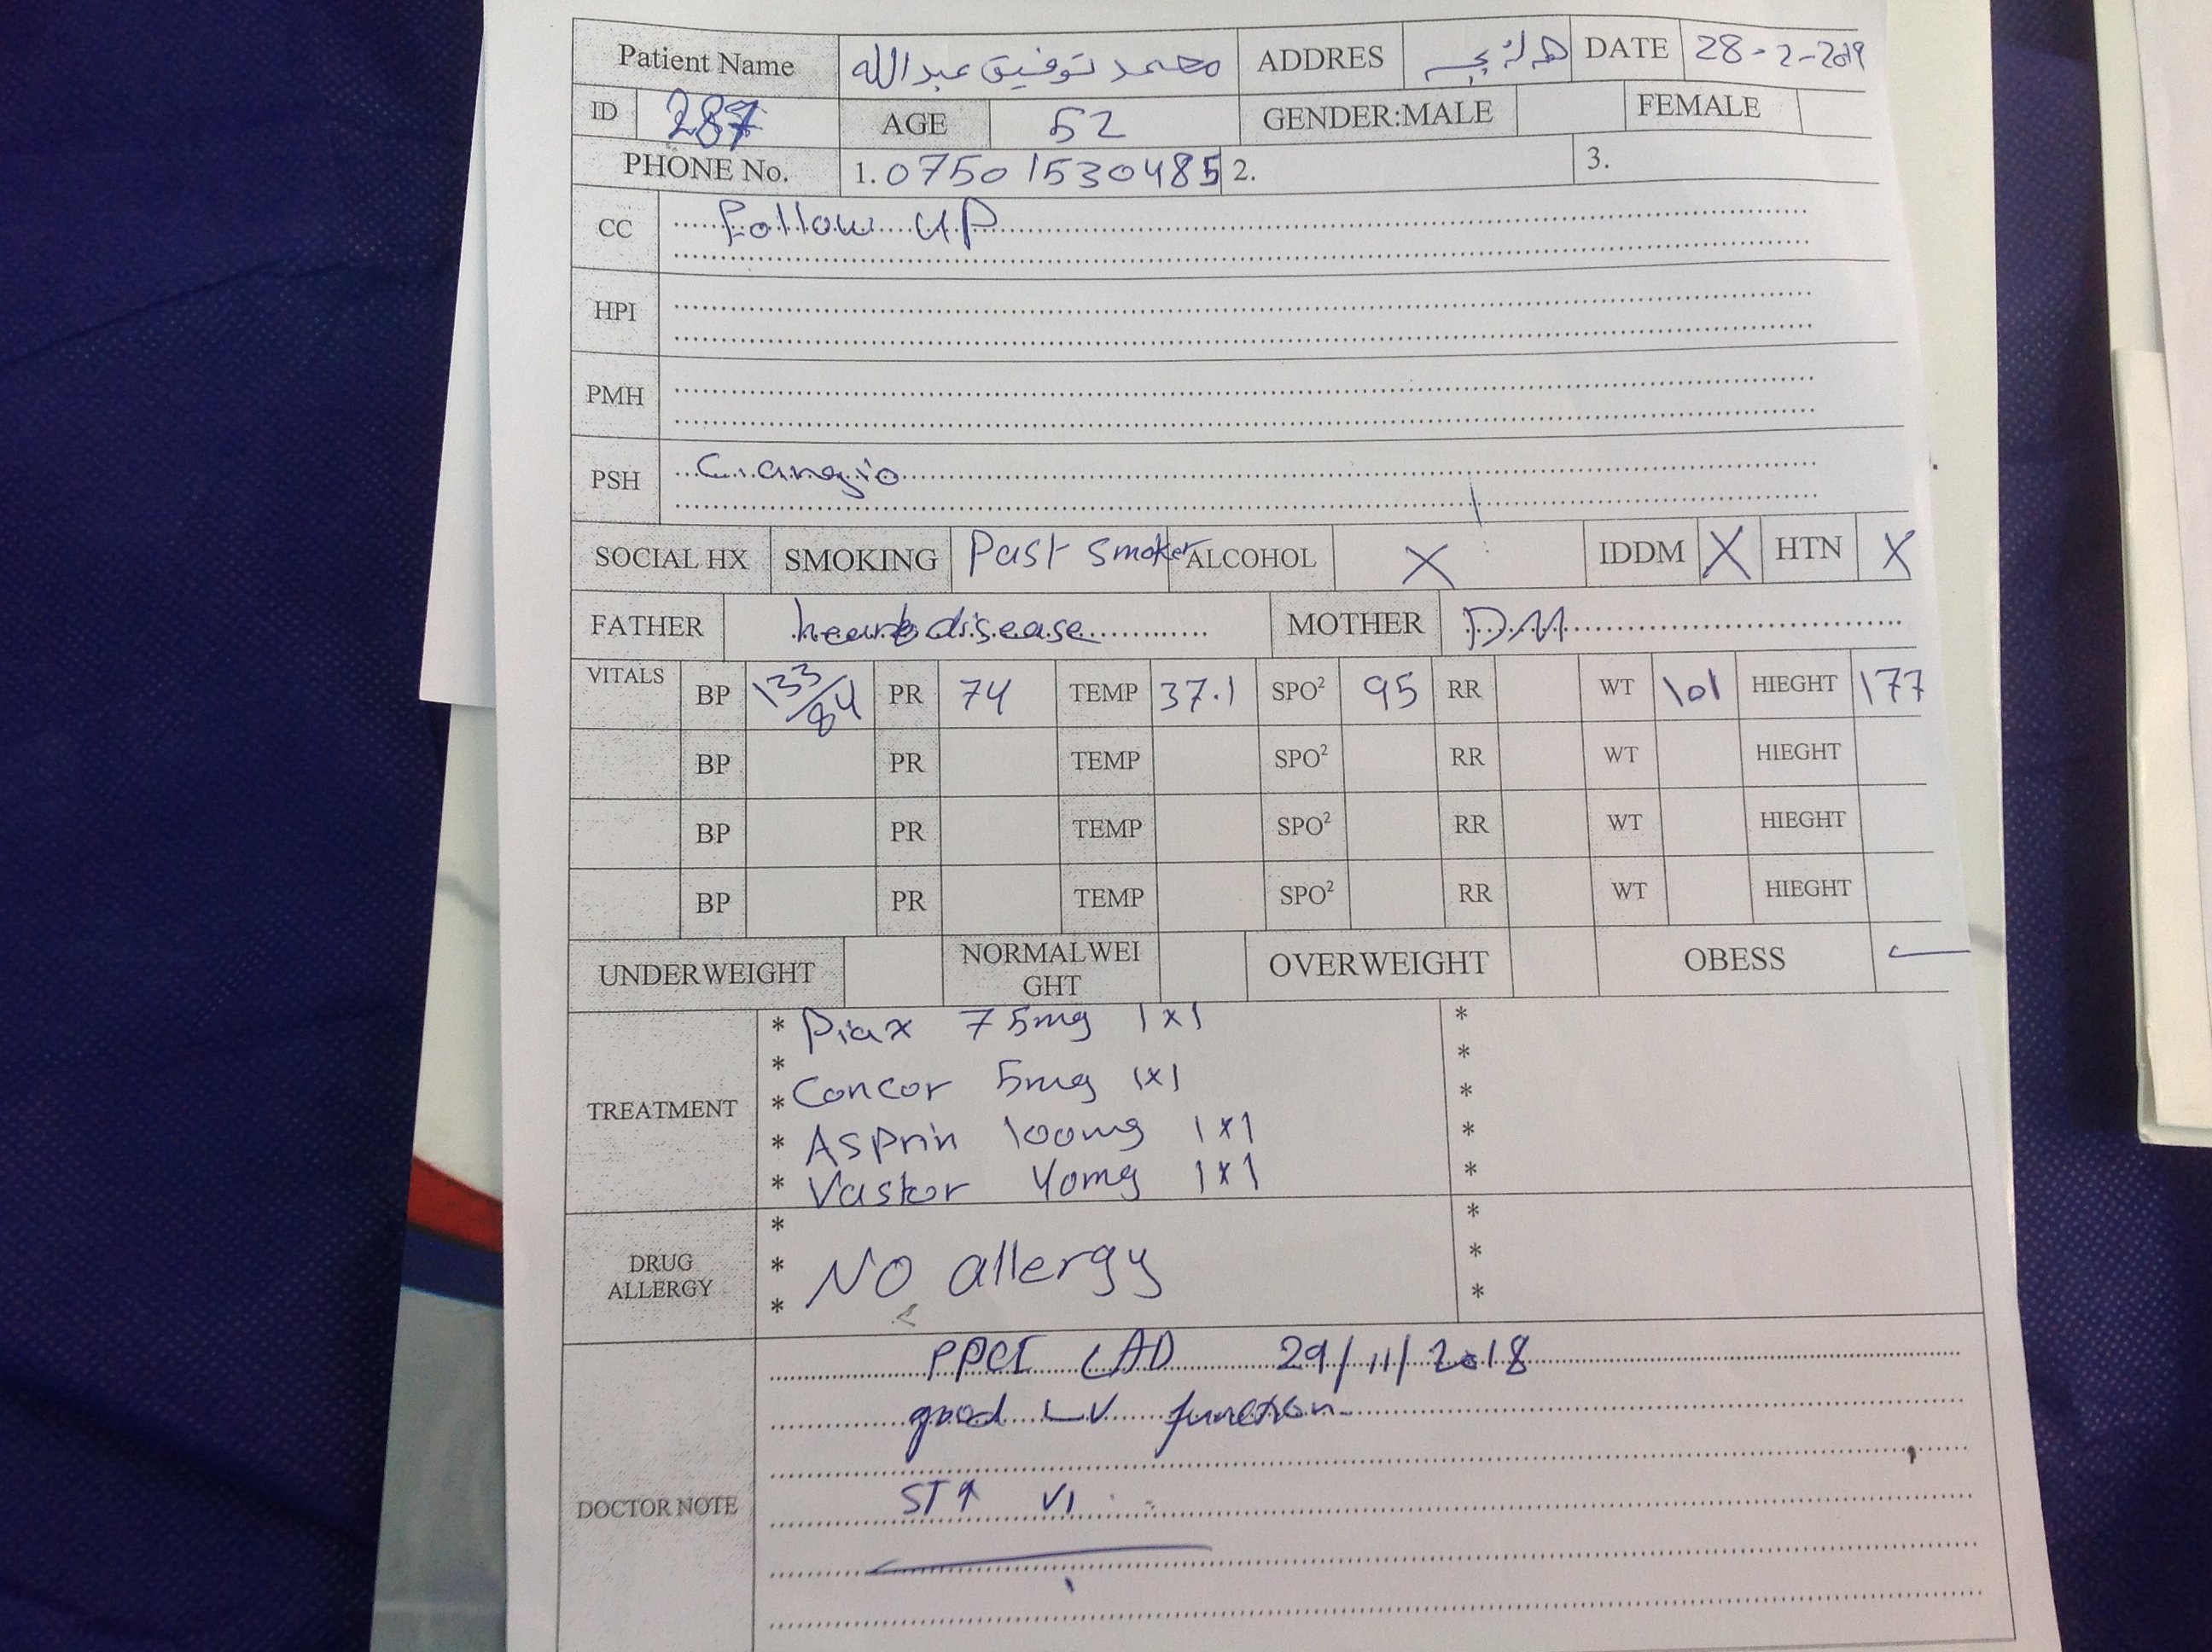 Patient Name محمد توفيق عبدالله ADDRES DATE 28-2-2019
ID 287 AGE 52 GENDER:MALE FEMALE
PHONE No. 1. 07501530485 2. 3.
CC Follow UP
HPI
PMH
PSH C.angio
SOCIAL HX SMOKING Past smoker ALCOHOL X IDDM X HTN X
FATHER heart disease MOTHER DM
VITALS BP 133/84 PR 74 TEMP 37.1 SPO² 95 RR WT 101 HIEGHT 177
BP PR TEMP SPO² RR WT HIEGHT
BP PR TEMP SPO² RR WT HIEGHT
BP PR TEMP SPO² RR WT HIEGHT
UNDERWEIGHT NORMALWEIGHT OVERWEIGHT OBESS
TREATMENT
* Piax 75mg 1x1 *
* *
* Concor 5mg 1x1 *
* Asprin 100mg 1x1 *
* Vastor 40mg 1x1 *
DRUG ALLERGY
* *
* No allergy *
* *
DOCTOR NOTE
PPCI LAD 29/11/2018
good LV function
ST↑ V1